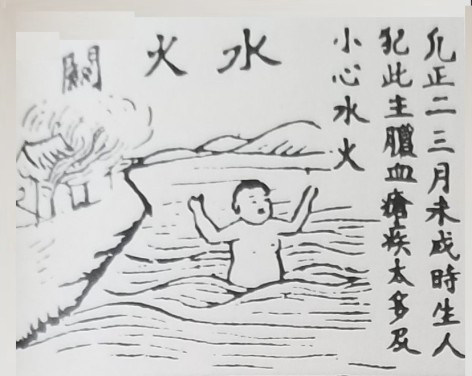 水火關
凢正二三月未戌時生人
犯此主膿血瘡疾太多及
小心水火